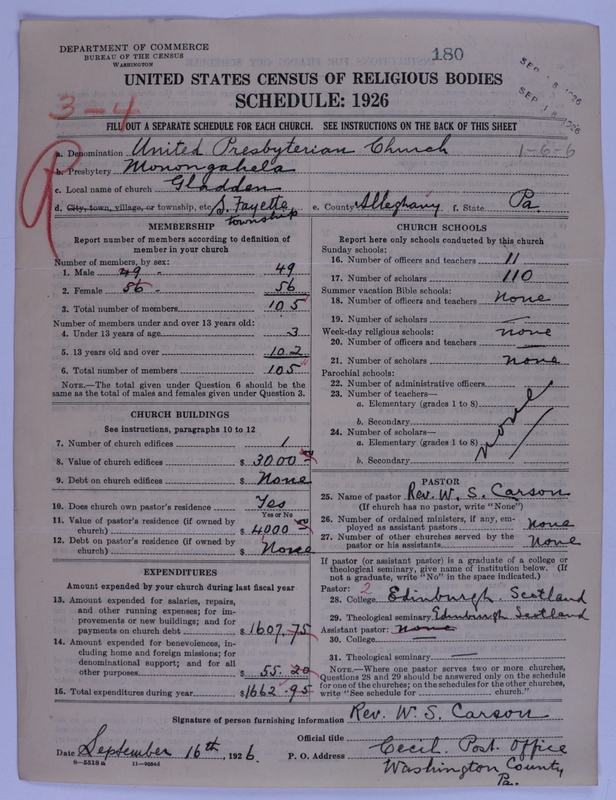 DEPARTMENT OF COMMERCE
BUREAU OF THE CENSUS
WASHINGTON
180
UNITED STATES CENSUS OF RELIGIOUS BODIES
SCHEDULE: 1926
3-4
FILL OUT A SEPARATE SCHEDULE FOR EACH CHURCH. SEE INSTRUCTIONS ON THE BACK OF THIS SHEET
a. Denomination United Presbyterian Church 1-6-6
b. Presbytery Monongahela
c. Local name of church Gladden
d. City, town, village, or township, etc. S. Fayette township e. County Alleghany f. State Pa.
MEMBERSHIP
Report number of members according to definition of member in your church
Number of members, by sex:
1. Male 49 49
2. Female 56 56
3. Total number of members 105
Number of members under and over 13 years old:
4. Under 13 years of age 3
5. 13 years old and over 102
6. Total number of members 105
NOTE.—The total given under Question 6 should be the same as the total of males and females given under Question 3.
CHURCH BUILDINGS
See instructions, paragraphs 10 to 12
7. Number of church edifices 1
8. Value of church edifices $ 3000
9. Debt on church edifices $ None
10. Does church own pastor's residence Yes
Yes or No
11. Value of pastor's residence (if owned by church) $ 4000
12. Debt on pastor's residence (if owned by church) $ None
EXPENDITURES
Amount expended by your church during last fiscal year
13. Amount expended for salaries, repairs, and other running expenses; for improvements or new buildings; and for payments on church debt $ 1607.75
14. Amount expended for benevolences, including home and foreign missions; for denominational support; and for all other purposes $ 55.20
15. Total expenditures during year $ 1662.95
CHURCH SCHOOLS
Report here only schools conducted by this church
Sunday schools:
16. Number of officers and teachers 11
17. Number of scholars 110
Summer vacation Bible schools:
18. Number of officers and teachers None
19. Number of scholars —
Week-day religious schools:
20. Number of officers and teachers none
21. Number of scholars None
Parochial schools:
22. Number of administrative officers
23. Number of teachers—
a. Elementary (grades 1 to 8)
b. Secondary
24. Number of scholars—
a. Elementary (grades 1 to 8)
b. Secondary
none
PASTOR
25. Name of pastor Rev. W. S. Carson
(If church has no pastor, write "None")
26. Number of ordained ministers, if any, employed as assistant pastors None
27. Number of other churches served by the pastor or his assistants None
If pastor (or assistant pastor) is a graduate of a college or theological seminary, give name of institution below. (If not a graduate, write "No" in the space indicated.)
Pastor: 2
28. College Edinburgh. Scotland
29. Theological seminary Edinburgh Scotland
Assistant pastor: None
30. College —
31. Theological seminary —
NOTE.—Where one pastor serves two or more churches, Questions 28 and 29 should be answered only on the schedule for one of the churches; on the schedules for the other churches, write "See schedule for church."
Signature of person furnishing information Rev. W. S. Carson
Official title
Date September 16th, 1926. P. O. Address Cecil. Post. Office
Washington County
Pa.